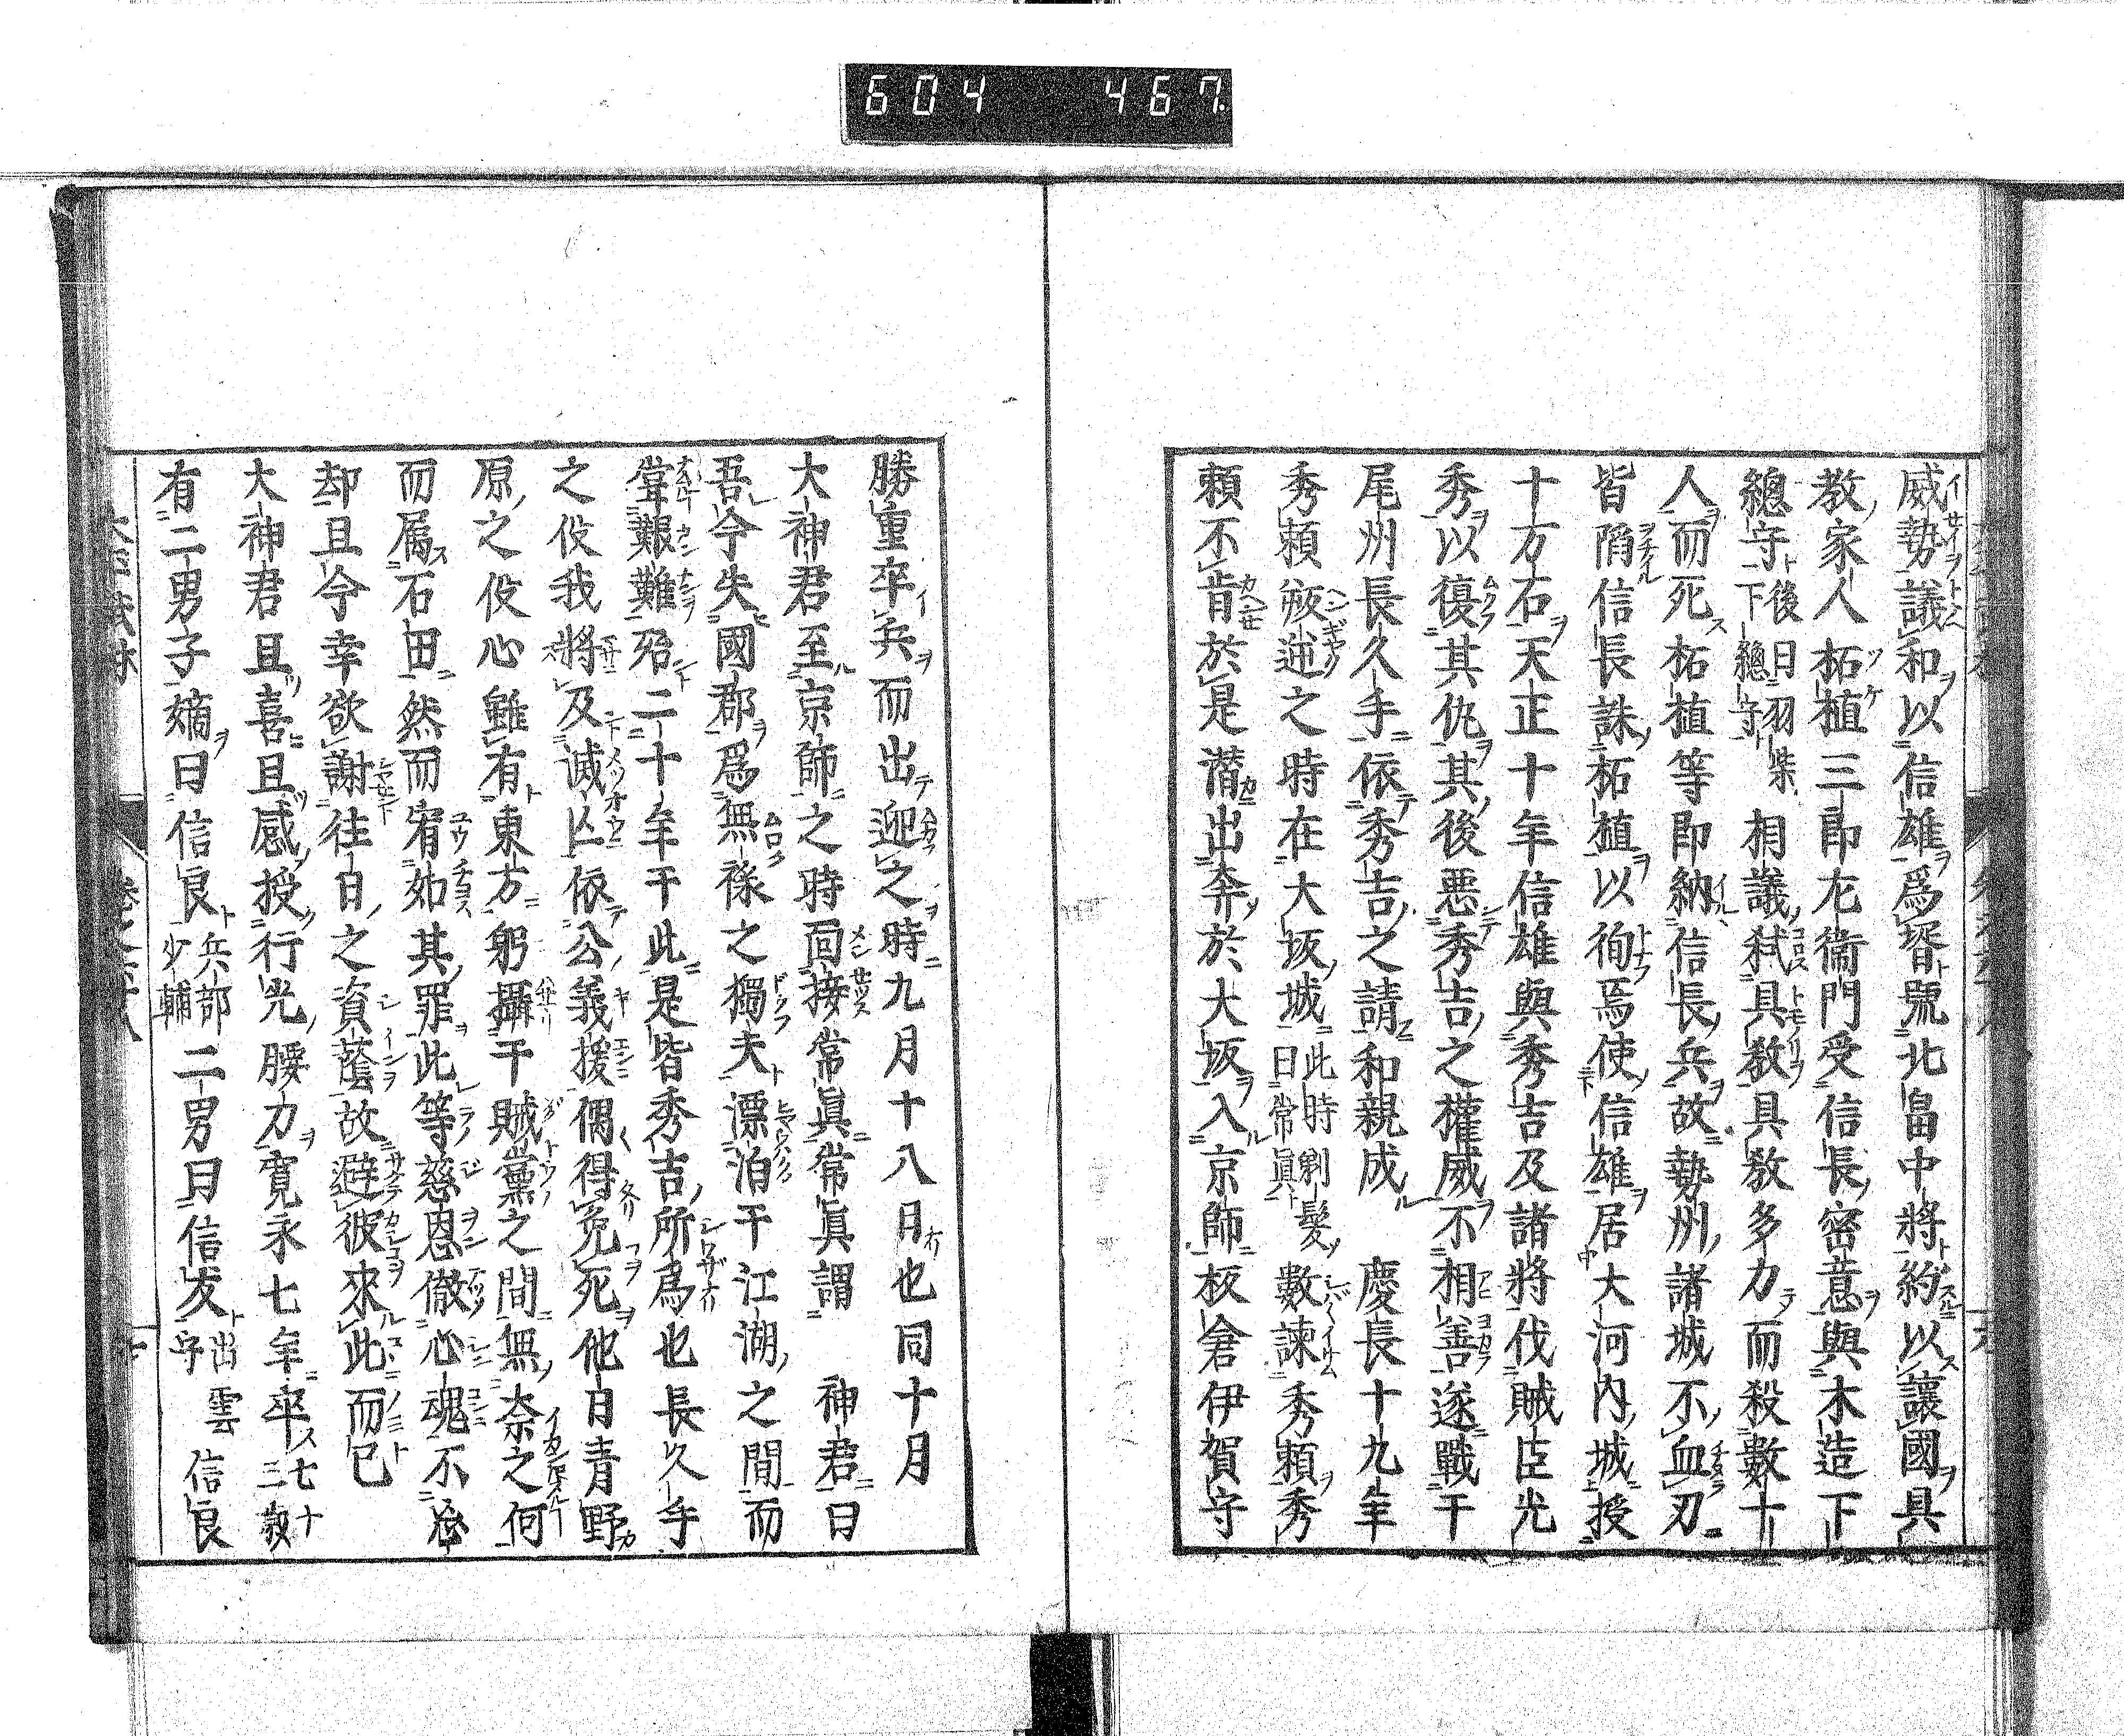 604 467
威勢議和以信雄爲壻號北畠中將約以讓國具
教家人柘植三郎左衛門受信長密意與木造下
總守後日羽柴下總守相議弑具教具教多力而殺數十
人而死柘植等即納信長兵故勢州諸城不血刃
皆䧟信長誅柘植以徇焉使信雄居大河內城授
十万石天正十年信雄與秀吉及諸將伐賊臣光
秀以復其仇其後惡秀吉之權威不相善遂戰于
尾州長久手依秀吉之請和親成 慶長十九年
秀頼叛逆之時在大坂城此時剃髮曰常眞數諫秀頼秀
頼不肯於是潛出奔於大坂入京師板倉伊賀守
勝重卒兵而出迎之時九月十八日也同十月
大神君至京師之時面接常眞常眞謂 神君曰
吾今失國郡爲無祿之獨夫漂泊于江湖之間而
甞艱難殆二十年于此是皆秀吉所爲也長久手
之伇我將及滅亡依公義援偶得免死他日青野
原之伇心雖有東方躬攝于賊黨之間無奈之何
而属石田然而宥如其罪此等慈恩徹心魂不
却且今幸欲謝往日之資蔭故避彼來此而已
大神君且喜且感授行光腰刀寛永七年卒七十三歲
有二男子嫡曰信良兵部少輔二男曰信友出雲守信良